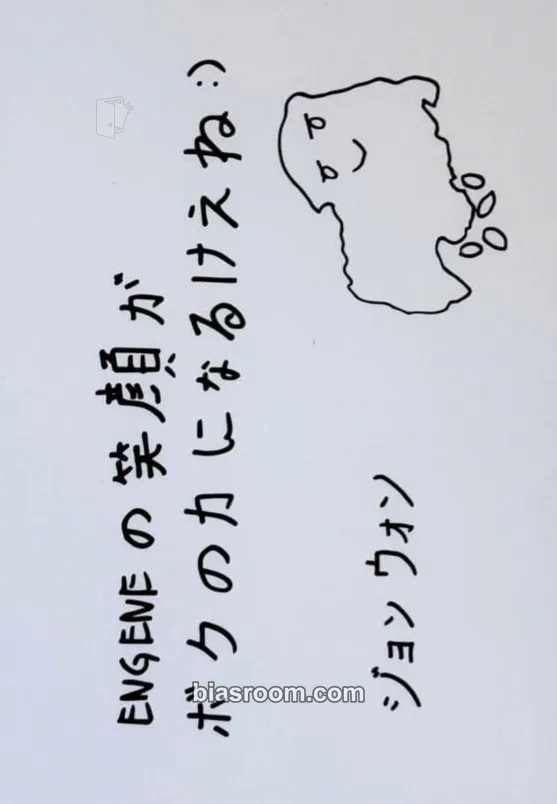 ENGENEの笑顔が
ボクの力になるけえね:)
ジョンウォン
biasroom.com